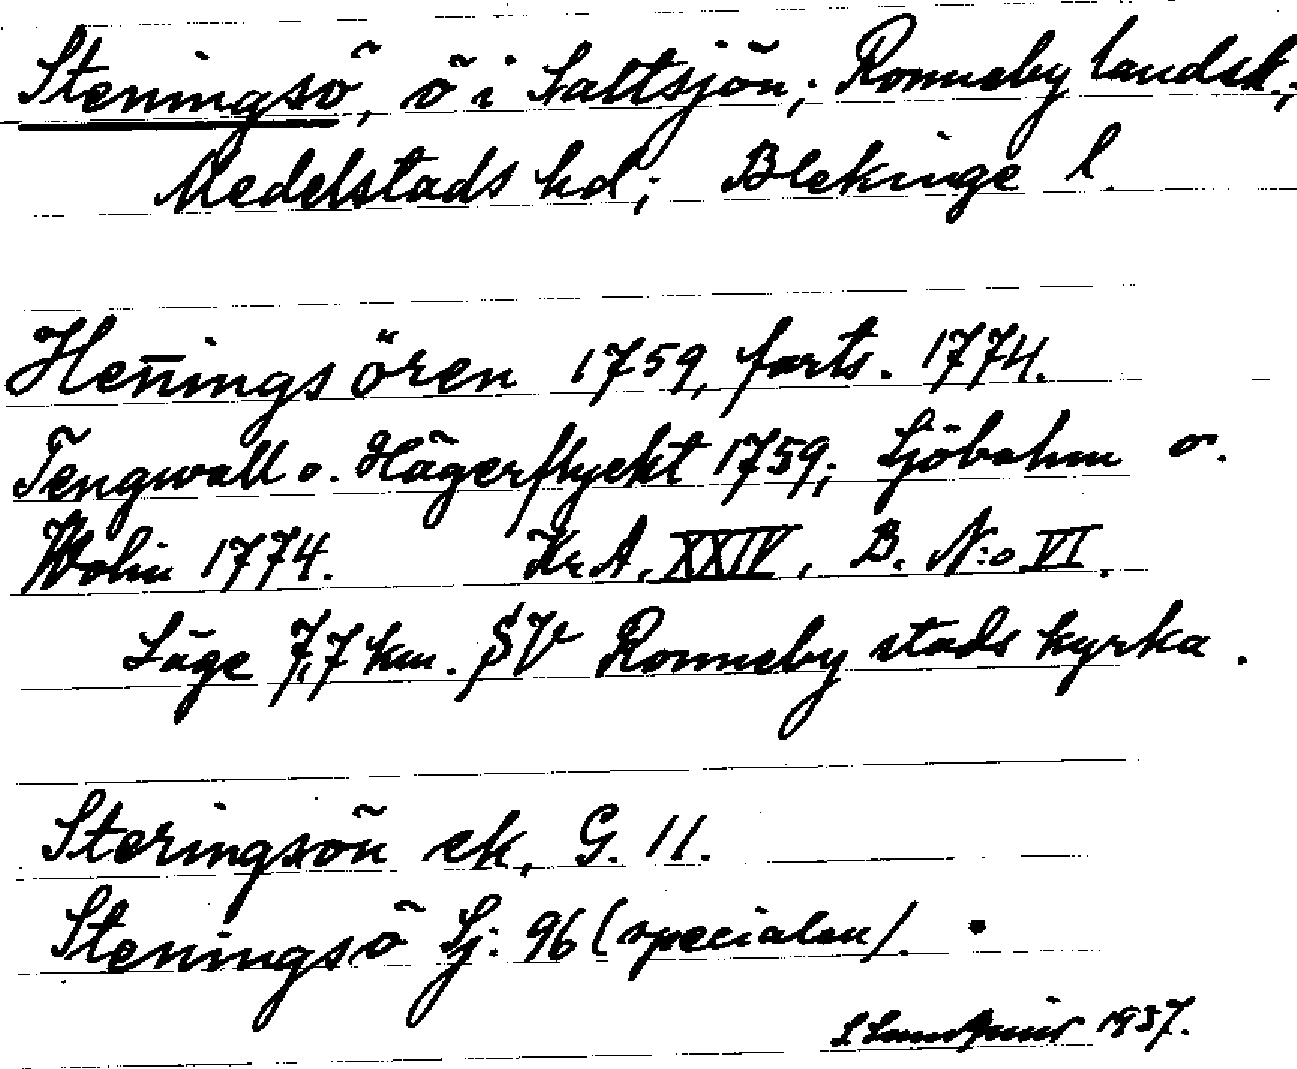 Steningsö, ö i Saltsjön; Ronneby landsk.;
Medelstads hd; Blekinge l.
Heñings ören 1759, forts. 1774.
Tengwall o. Hägerflycht 1759; Sjöbohm o.
Wolin 1774. Kr.A. XXIV, B. N:o VI.
Läge 7,7 km. SV Ronneby stads kyrka.
Steringsön ek, G. 11.
Steningsö Sj: 96 (specialen).
1937.